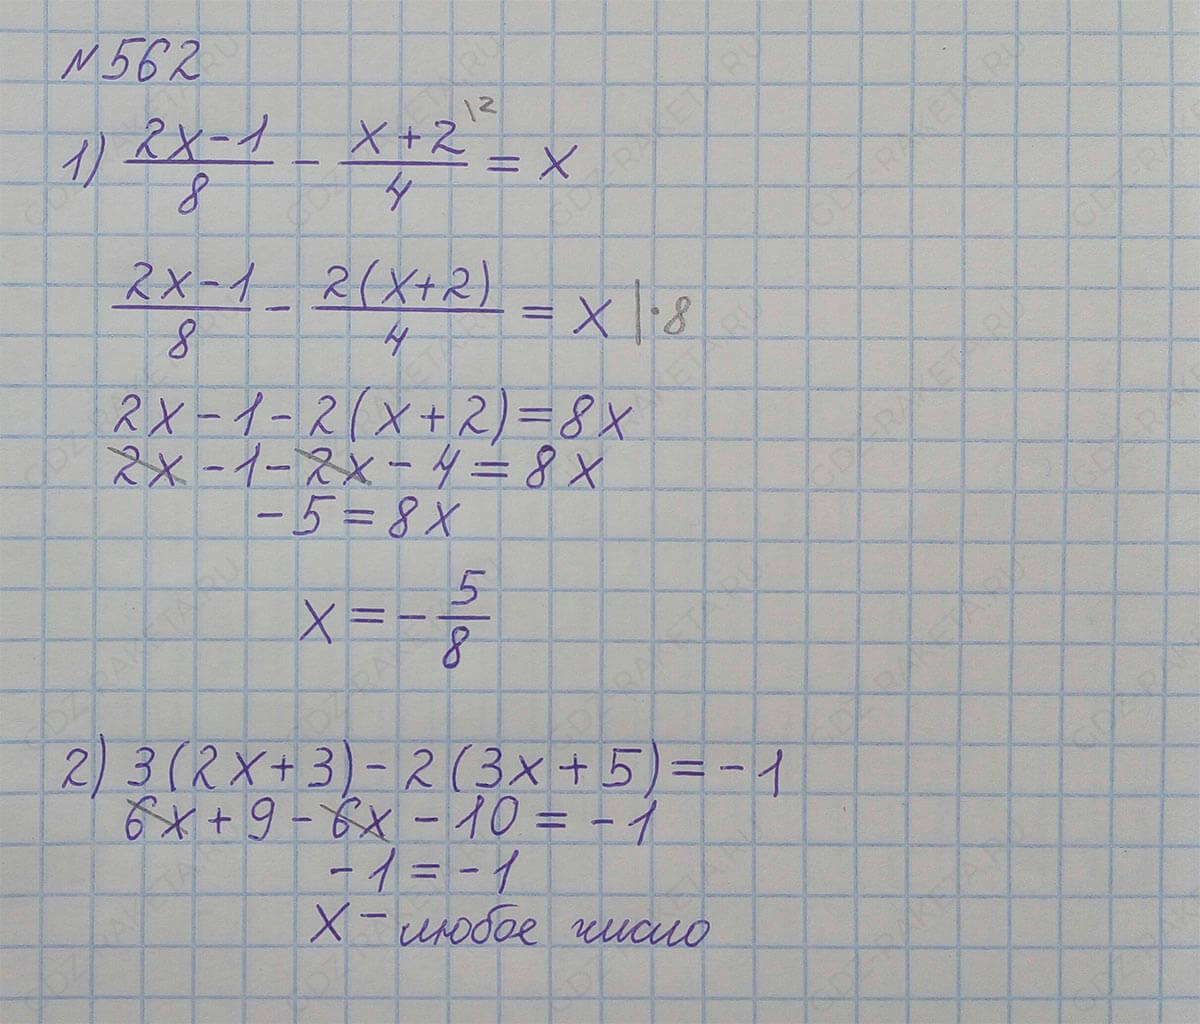 №562
1) (2x-1)/8 - (x+2)/4 \2 = x
(2x-1)/8 - 2(x+2)/4 = x |·8
2x-1-2(x+2)=8x
2x-1-2x-4=8x
-5=8x
x=-5/8
2) 3(2x+3)-2(3x+5)=-1
6x+9-6x-10=-1
-1=-1
x - любое число
GDZ-RAKETA.RU